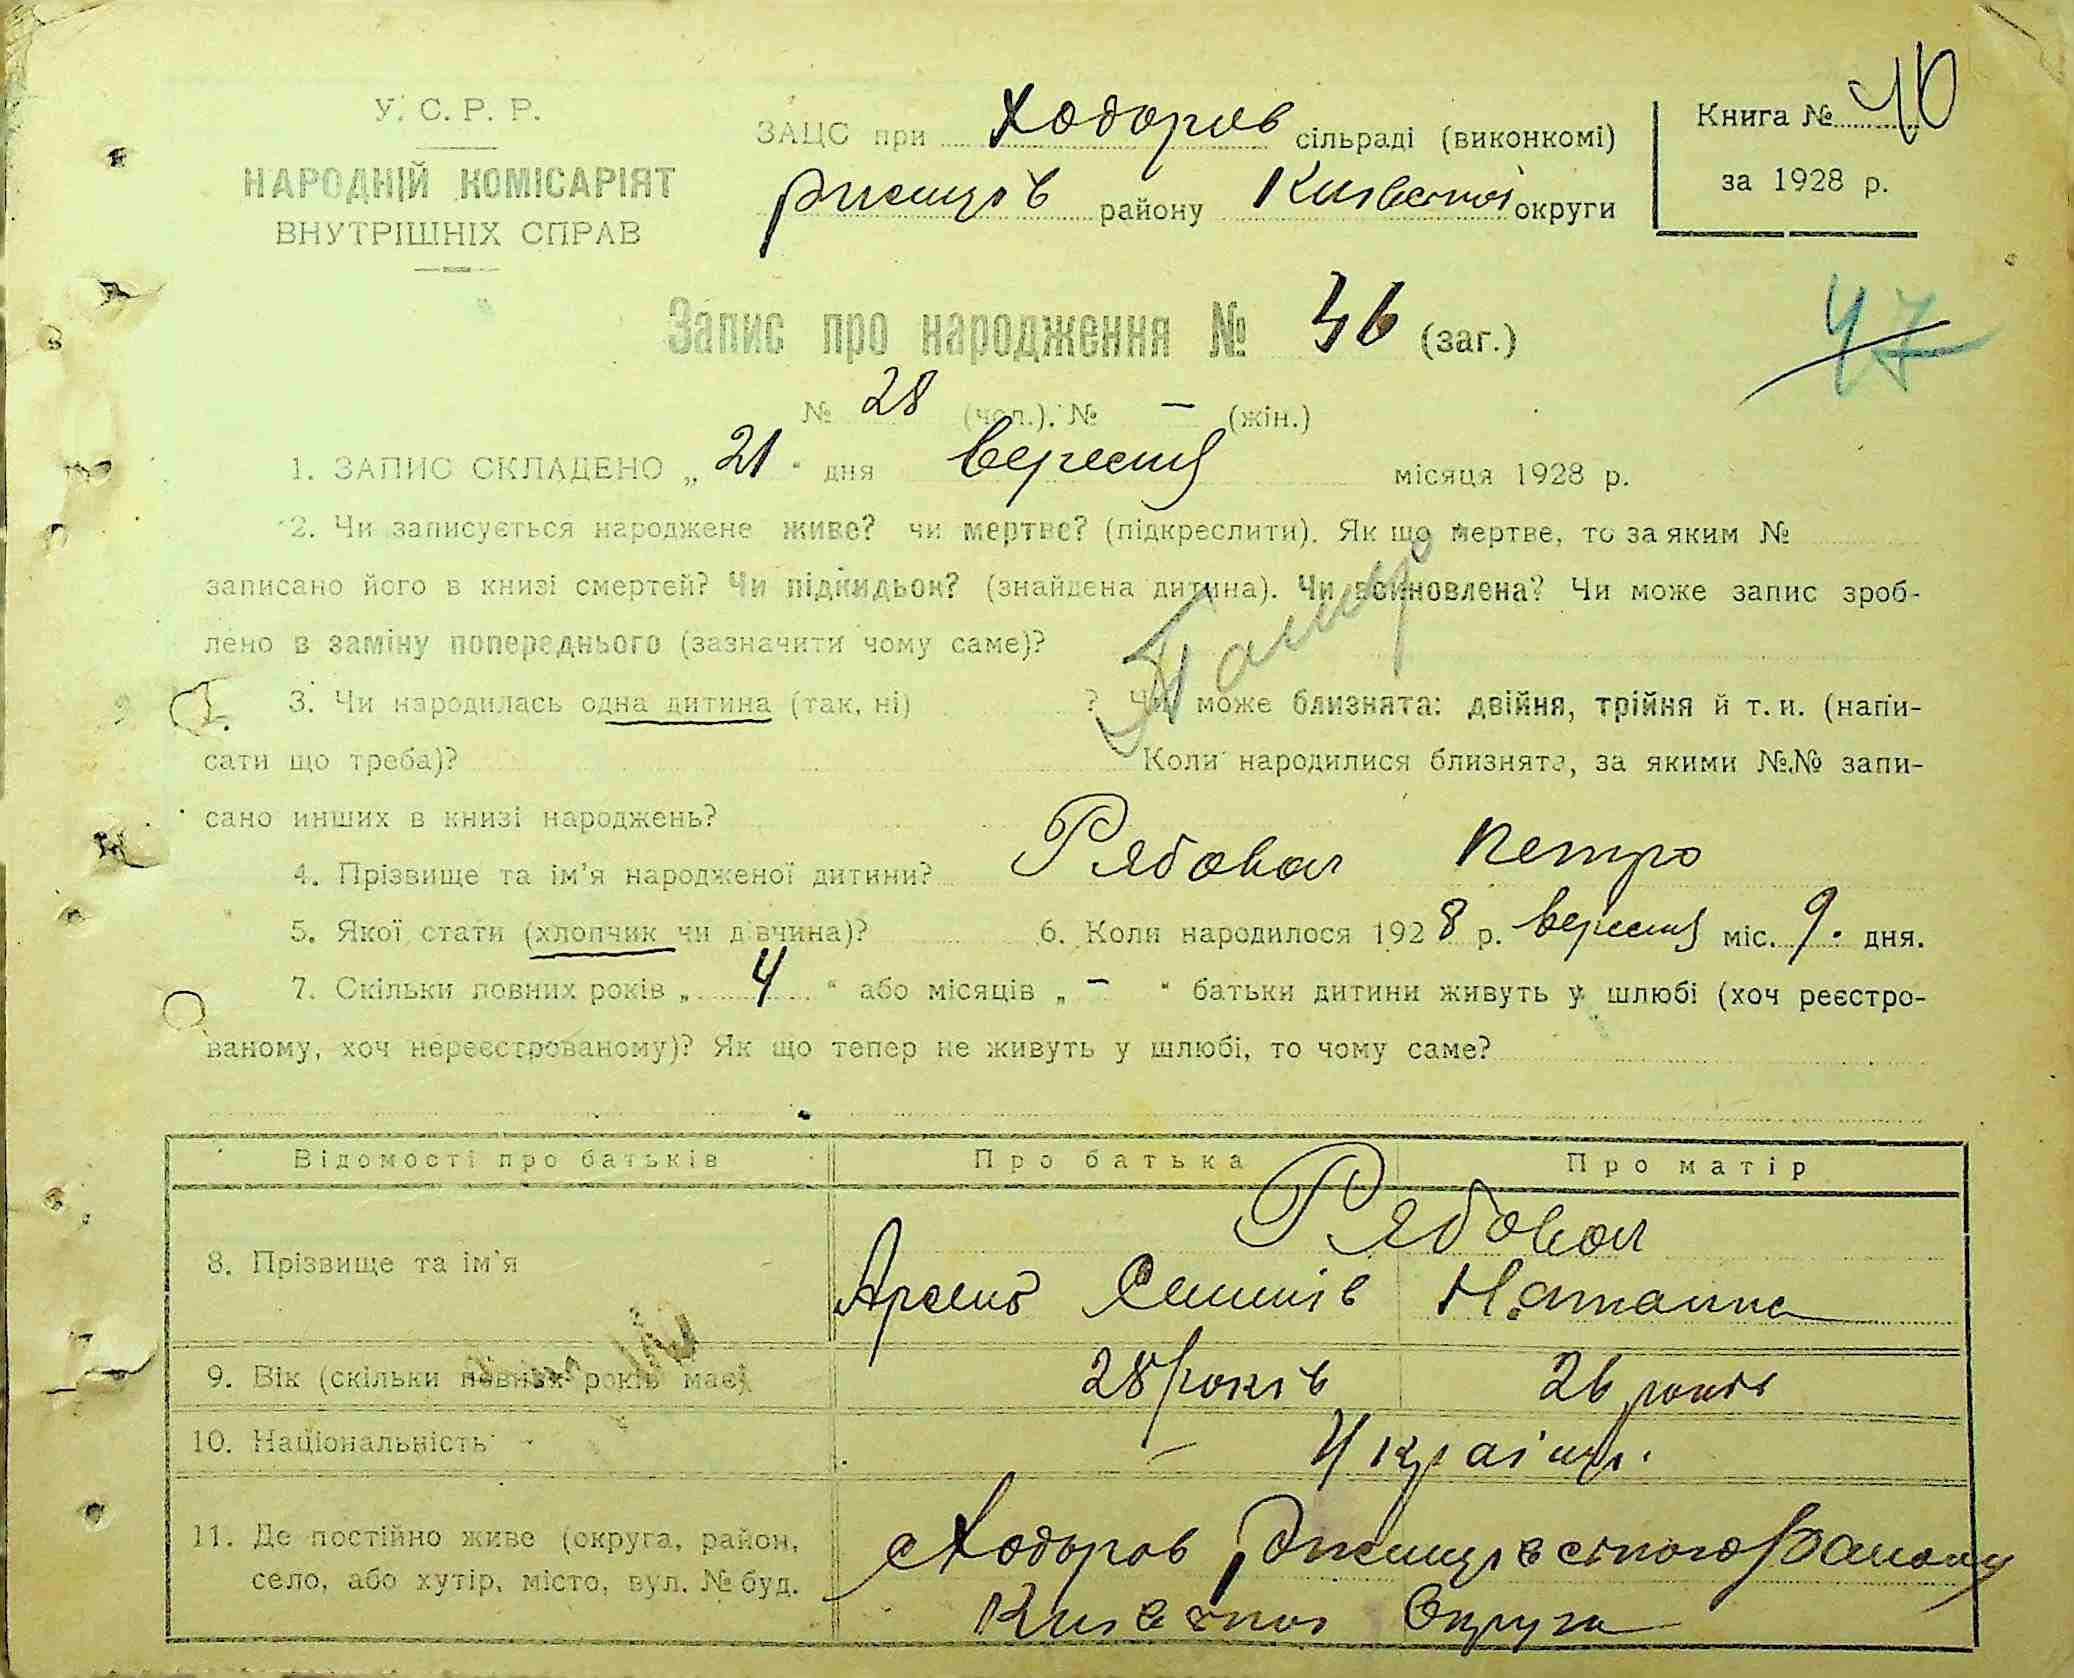 У. С. Р. Р.
НАРОДНІЙ КОМІСАРІЯТ
ВНУТРІШНІХ СПРАВ
ЗАЦС при Ходоров сільраді (виконкомі)
Ржищів району Київської округи
Книга № 40
за 1928 р.
Запис про народження № 46 (заг.)
47
№ 28 (чол.). № – (жін.)
1. ЗАПИС СКЛАДЕНО „ 21 “ дня вересня місяця 1928 р.
2. Чи записується народжене живе? чи мертве? (підкреслити). Як що мертве, то за яким №
записано його в книзі смертей? Чи підкидьок? (знайдена дитина). Чи всиновлена? Чи може запис зроб-
лено в заміну попереднього (зазначити чому саме)?
3. Чи народилась одна дитина (так, ні) ? Чи може близнята: двійня, трійня й т. и. (напи-
сати що треба)? Коли народилися близнята, за якими №№ запи-
сано инших в книзі народжень?
4. Прізвище та ім’я народженої дитини? Рябовол Петро
5. Якої стати (хлопчик чи дівчина)? 6. Коли народилося 1928 р. вересня міс. 9. дня.
7. Скільки повних років „ 4 “ або місяців „ – “ батьки дитини живуть у шлюбі (хоч реєстро-
ваному, хоч нереєстрованому)? Як що тепер не живуть у шлюбі, то чому саме?
Відомості про батьків Про батька Про матір
Рябовол
8. Прізвище та ім’я Арсень Наталка
9. Вік (скільки повних років має) 28 років 26 років
10. Національність – Україн.
11. Де постійно живе (округа, район, с Ходоров Ржищівського Району
село, або хутір, місто, вул. № буд. Київської Округи